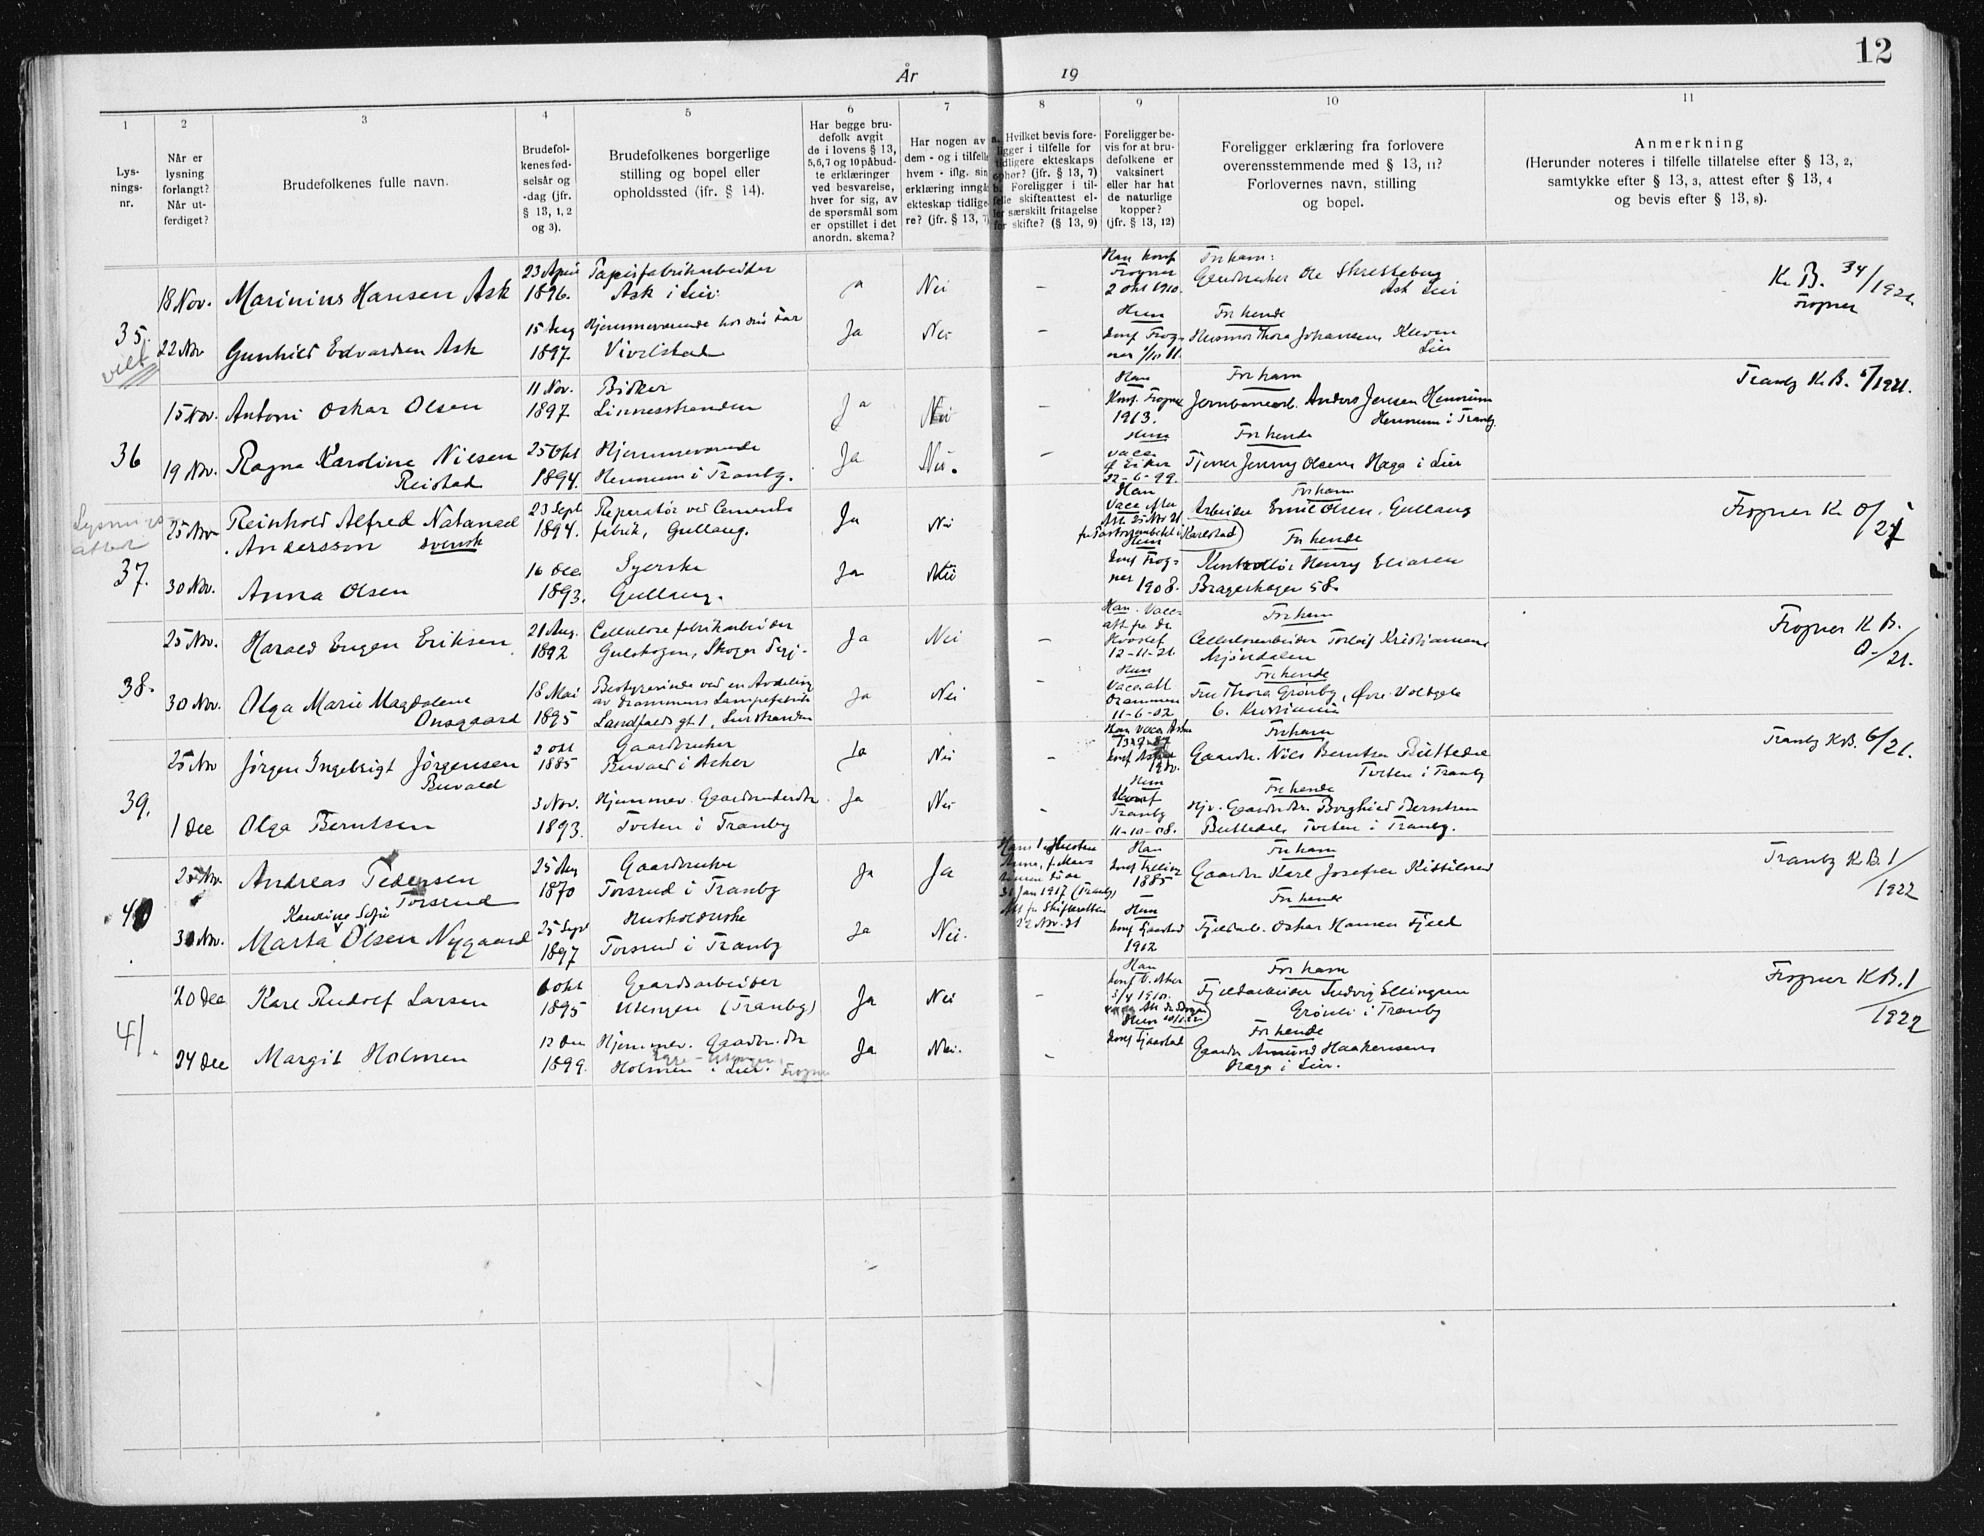 12
År
19
1
2
3
4
5
6
7
8
9
10
11
Lys-
nings-
nr.
Når er
lysning
forlangt?
Når ut-
ferdiget?
Brudefolkenes fulle navn.
Brudefol-
kenes fød-
selsår og
-dag (jfr.
§ 13, 1, 2
og 3).
Brudefolkenes borgerlige
stilling og bopel eller
opholdssted (jfr. § 14).
Har begge bru-
defolk avgit
de i lovens § 13,
5,6,7 og 10 påbud-
te erklæringer
ved besvarelse,
hver for sig, av
de spørsmål som
er opstillet i det
anordn. skema?
Har nogen av
dem - og i tilfelle
hvem - iflg. sin
erklæring inngå
ekteskap tidlige
re? (jfr. § 13, 7
a. Hvilket bevis fore-
ligger i tilfelle for
tidligere ekteskaps
ophør? (jfr. § 13, 7)
b. Foreligger i til-
felle skifteattest el-
ler særskilt fritagelse
for skifte? (§ 13, 9)
Foreligger be-
vis for at bru-
defolkene er
vaksinert
eller har hat
de naturlige
kopper?
(jfr. § 13, 12)
Foreligger erklæring fra forlovere
overensstemmende med § 13, 11?
Forlovernes navn, stilling
og bopel.
Anmerkning
(Herunder noteres i tilfelle tillatelse efter § 13, 2,
samtykke efter § 13, 3, attest efter § 13, 4
og bevis efter § 13, 8).
35.
viet
18 Nov. Marinius Hansen Ask
23 April
1896.
Tapetfabrikarbeider
Ask i Lier
Ja
Nei
Han konf
Frogner
2 okt 1910.
For ham:
Gaardbruker Ole
Ask Lier
K. B. 34/1921.
Frogner
22 Nov Gunhild Edvardsen Ask
15 Aug
1897.
Hjemmeværende hos sin Far
Vivelstad
Ja
Nei
Hun
konf Frog-
ner
For hende
Husmor Thora Johansen Kleven
Lier
36
15 Nov. Antoni Oskar Olsen
11 Nov.
1897.
Bødker
Linnesstranden
Ja
Nei
Han
Konf. Frogner
1913.
For ham
Jernbanearb. Anders Jensen Hennum
Hennum i Tranby.
Tranby K. B. 5/1921.
19 Nov. Ragna Karoline Nilsen
Reistad
25 Okt
1894.
Hjemmeværende
Hennum i Tranby.
Ja
Nei.
Hun
vacc.
Ø Eiker
22-6-99.
For hende
Tjener Jenny Olsen Haga i Lier
Lysnings-
attest
37.
25 Nov Reinhold Alfred Natanael
Andersson svensk
23 Sept
1894.
Reparatør ved Cements
fabrik, Gullaug.
Ja
Nei
Han
Vacc. efter
Att. 25 Nov 21.
fra Pastorsembetet i Karlstad
For ham
Arbeider Emil Olsen. Gullaug
Frogner K. 0/21
30 Nov. Anna Olsen
16 Dec
1893.
Syerske
Gullaug.
Ja
Nei
Hun
konf Frog-
ner 1908.
For hende
Kontrollør Henry Eliasen
Bragerhagen 58.
38.
25 Nov. Harald Eugen Eriksen
21 Aug.
1892
Cellulosefabrikarbeider
Gulskogen, Skoger
Ja
Nei
Han. Vacc.
att. fra dr.
12-11-21.
For ham
Cellulosearbeider Torleif Kristiansen
Mjøndalen
Frogner K B.
0-/21.
30 Nov. Olga Marie Magdalene
Onsgaard
18 Mai
1895
Bestyrerinde ved en Avdeling
av Drammens Lampefabrik
Landfaldsgt. 1, Lierstranden
Ja
Nei
Hun
Vacc.att
Drammen
11-6-02
For hende
Frk Thora Grønby, Øvre Voldgate
6. Kristiania
39.
25 Nov Jörgen Ingebrigt Jörgensen
Buvald
2 okt
1885
Gaardbruker
Buvald i Asker
Ja
Nei
Han Vacc. Asker
konf Asker
1900.
For ham
Gaardbr. Nils Berntsen
Tveten i Tranby
Tranby K.B. 6/21.
1 Dec Olga Berntsen
3 Nov.
1893.
Hjemmev. Gaardbrukerdtr.
Tveten i Tranby
Ja
Nei
Hun
Konf
Tranby
11-10-08.
For hende
Hjv. Gaardbrdtr. Borghild Berntsen
Tveten i Tranby.
40
25 Nov. Andreas Pedersen
Torsrud
25 Aug
1870
Gaardbruker
Torsrud i Tranby
Ja
Ja
Hans 1ste Hustru
Anna, f. Hans
datter døde
31 Jan 1917 (Tranby)
Att fra Skifteretten
22 Nov. 21
Han
konf
1885
For ham
Gaardbr Karl Josefsen Kittilsrud
Tranby K. B. 1/
1922
30 Nov. Karine Sofie
Marta Olsen Nygaard
25 Sept
1897
Husholderske
Torsrud i Tranby
Ja
Nei.
Hun
konf Sjaastad
1912
For hende
Fjeldarb. Oskar Hansen Fjeld
41.
20 Dec Karl Rudolf Larsen
6 okt
1895
Gaardsarbeider
Utengen (Tranby)
Ja
Nei
Han
konf V. Aker
3/4 1910.
For ham
Fjeldarbeider Ludvig Ellingsen
Grönli i Tranby
Frogner K B. 1
1922
24 Dec Margit Holmen
12 Dec
1899.
Hjemmev. Gaardbr. dtr
Holmen i Lier. Frogner
Ja
Nei.
Hun
konf Sjaastad
For hende
Gaardbr Amund Haakensen
Haga i Lier.